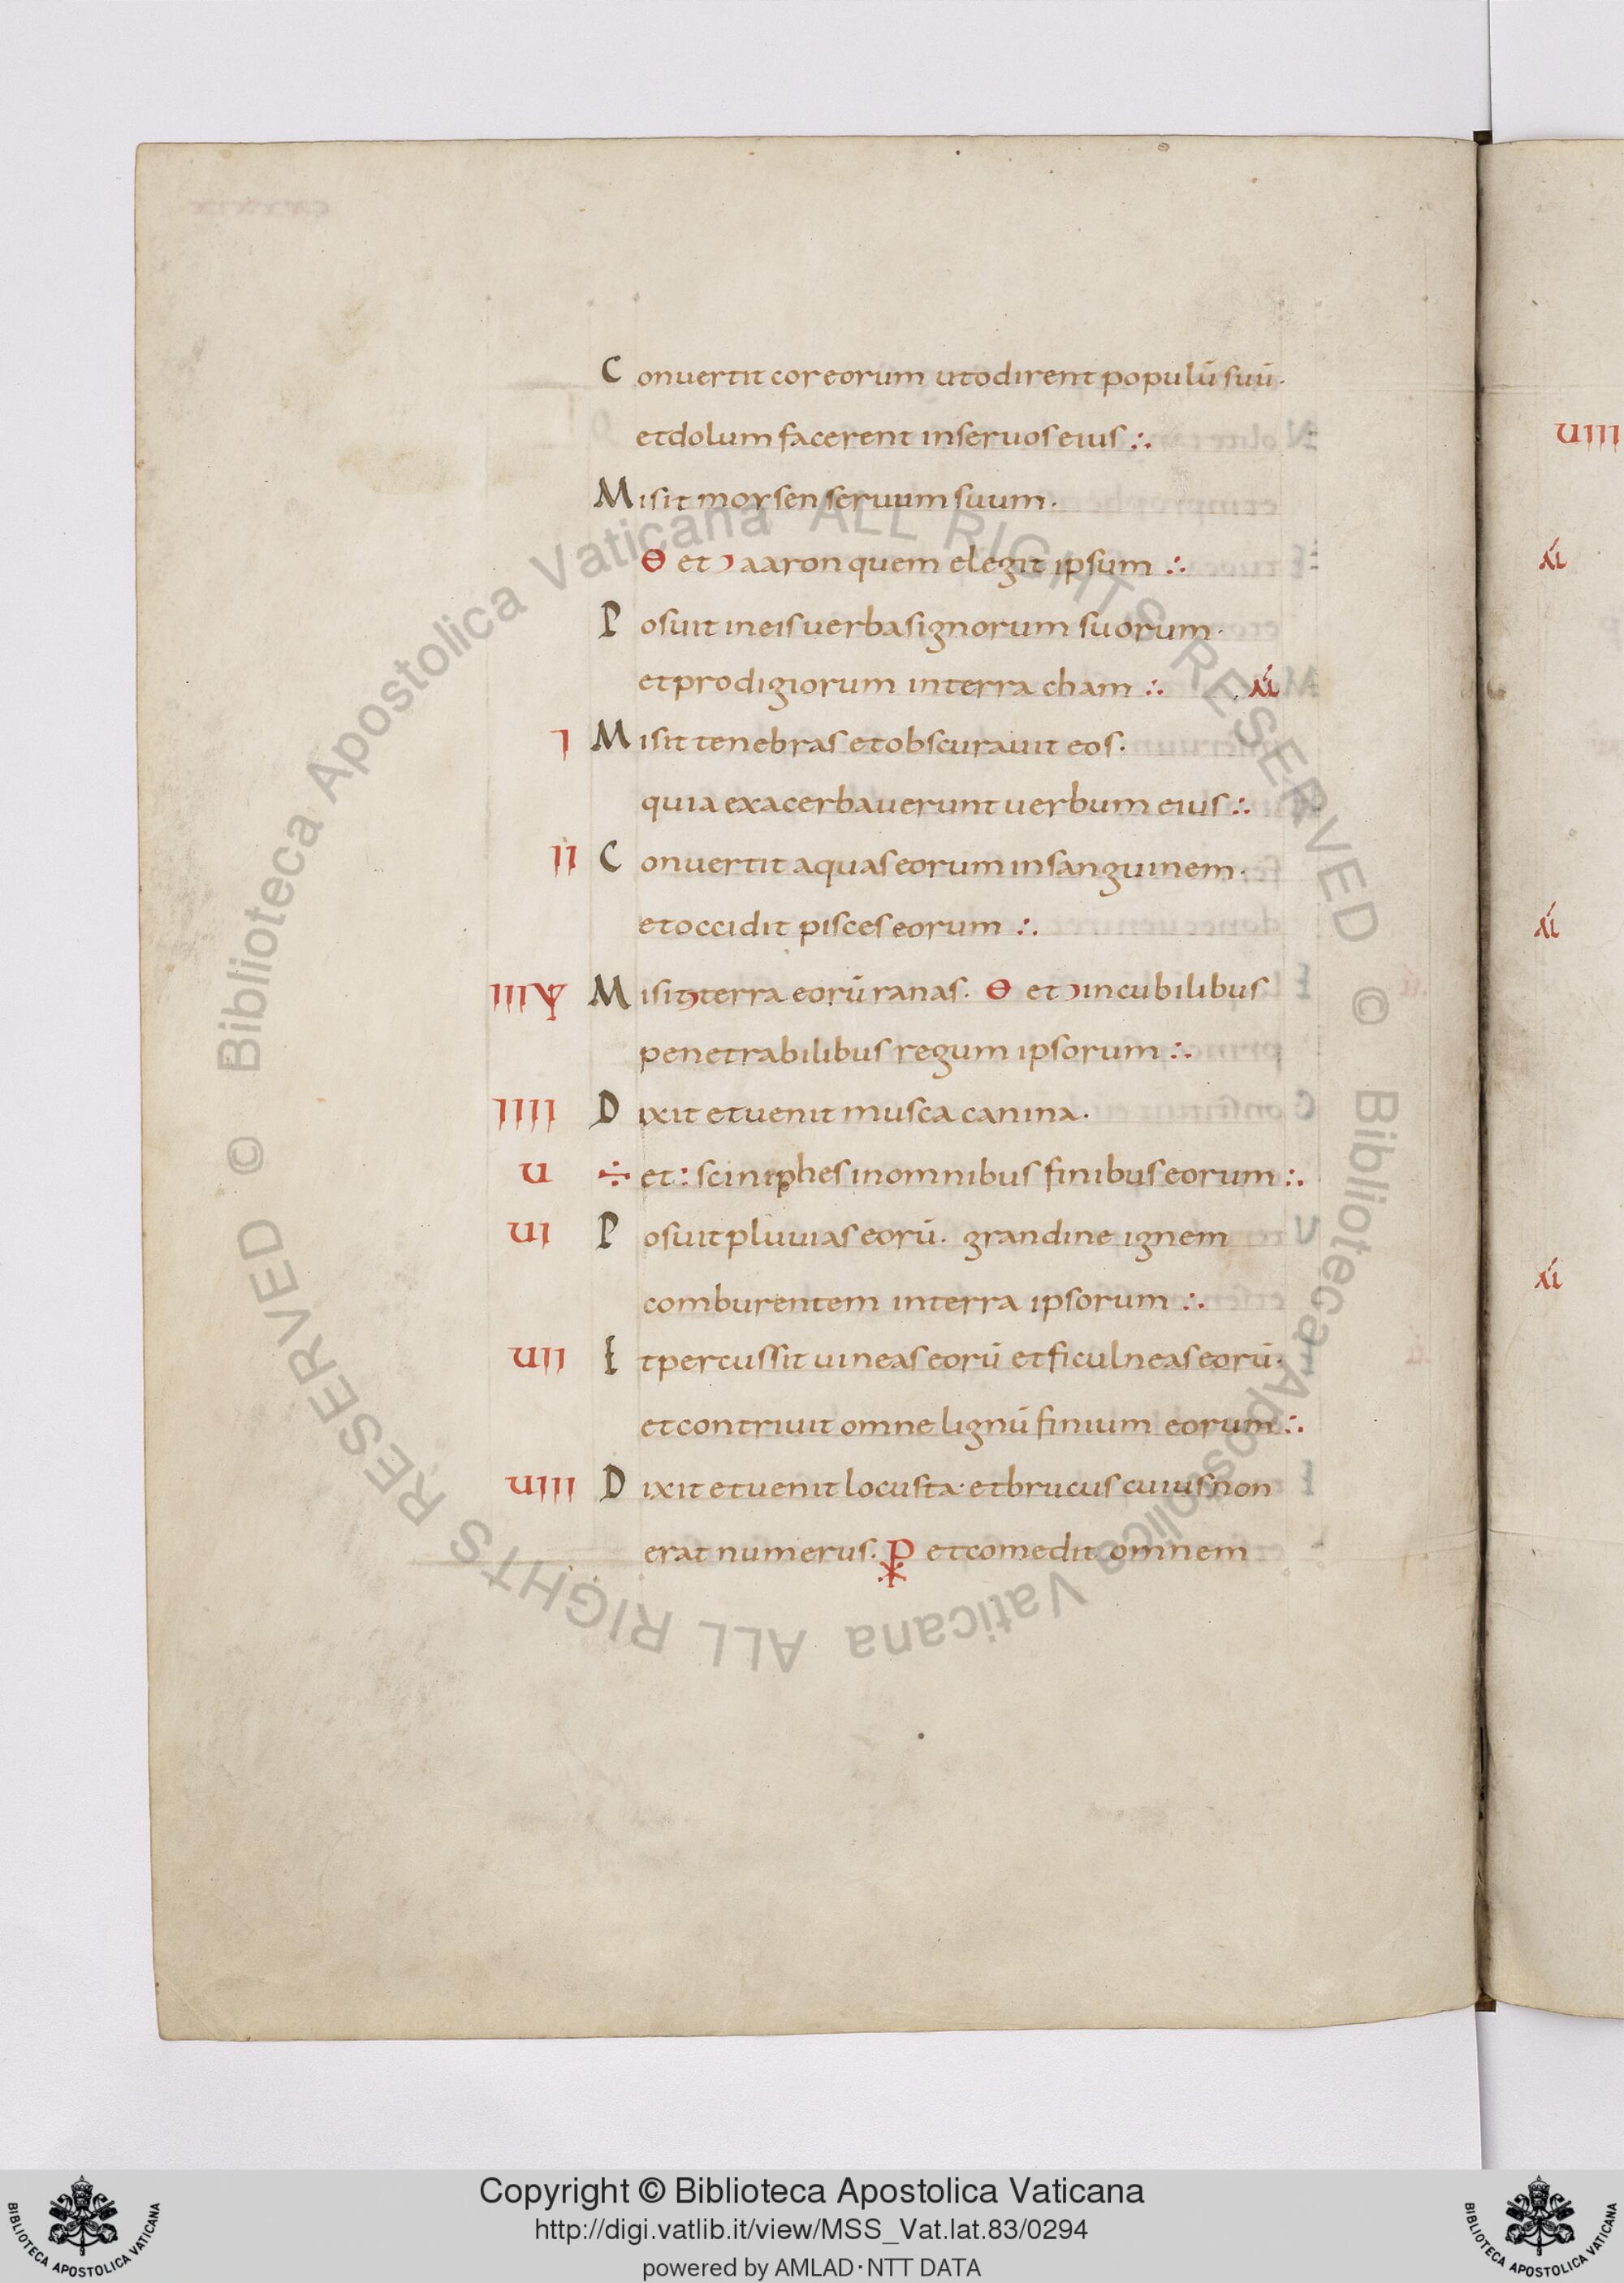 Conuertit cor eorum ut odirent populū suū·
et dolum facerent in seruos eius ∴
Misit moysen seruum suum·
ϴ et ͻ aaron quem elegit ipsum ∴
Posuit in eis uerba signorum suorum·
et prodigiorum in terra cham ∴
I Misit tenebras et obscurauit eos·
quia exacerbauerunt uerbum eius ∴
II Conuertit aquas eorum in sanguinem·
et occidit pisces eorum ∴
III Misit terra eorū ranas· ϴ et ͻ in cubilibus
penetrabilibus regum ipsorum ∴
IIII Dixit et uenit musca canina·
U ÷ et : sciniphes in omnibus finibus eorum ∴
UI Posuit pluuias eorū· grandine ignem
comburentem in terra ipsorum ∴
UII Et percussit uineas eorū et ficulneas eorū·
et contriuit omne lignū finium eorum ∴
UIII Dixit et uenit locusta· et brucus cuius non
erat numerus· ⳩ et comedit omnem
UIIII
© Biblioteca Apostolica Vaticana ALL RIGHTS RESERVED
© Biblioteca Apostolica Vaticana ALL RIGHTS RESERVED
Copyright © Biblioteca Apostolica Vaticana
http://digi.vatlib.it/view/MSS_Vat.lat.83/0294
powered by AMLAD·NTT DATA
BIBLIOTECA APOSTOLICA VATICANA
BIBLIOTECA APOSTOLICA VATICANA